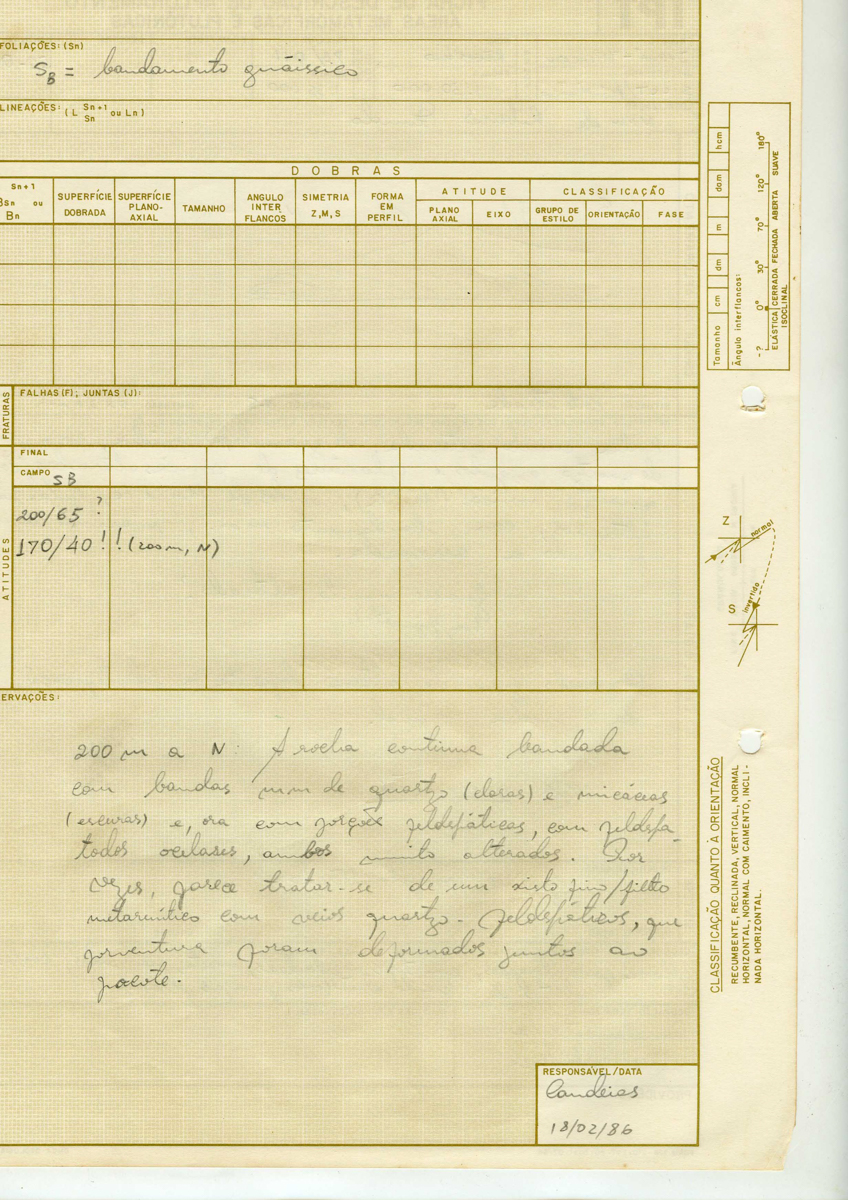 FOLIAÇÕES: (Sn)
SB = bandamento gnáissico
LINEAÇÕES: (L Sn+1 Sn ou Ln)
DOBRAS
Sn+1
Bsn ou
Bn
SUPERFÍCIE
DOBRADA
SUPERFÍCIE
PLANO-
AXIAL
TAMANHO
ANGULO
INTER
FLANCOS
SIMETRIA
Z, M, S
FORMA
EM
PERFIL
ATITUDE
PLANO
AXIAL
EIXO
CLASSIFICAÇÃO
GRUPO DE
ESTILO
ORIENTAÇÃO
FASE
FRATURAS
FALHAS (F); JUNTAS (J):
FINAL
CAMPO SB
ATITUDES
200/65 ?
170/40 ! ! (200m, N)
ERVAÇÕES:
200 m a N: A rocha continua bandada
com bandas mm de quartzo (claras) e micáceas
(escuras) e, ora com porções feldspáticas, com feldspa-
todos ocelares, ambos muito alterados. Por
vezes, parece tratar-se de um xisto fino/filito
metarmítico com veios quartzo-feldspáticos, que
porventura foram deformados juntos ao
pacote.
RESPONSÁVEL/DATA
Candeias
18/02/86
Tamanho cm dm m dam hcm
Ângulo interflancos:
-? 0° 30° 70° 120° 180°
ELÁSTICA CERRADA FECHADA ABERTA SUAVE
ISOCLINAL
Z
normal
S
invertido
CLASSIFICAÇÃO QUANTO À ORIENTAÇÃO
RECUMBENTE, RECLINADA, VERTICAL, NORMAL
HORIZONTAL, NORMAL COM CAIMENTO, INCLI-
NADA HORIZONTAL.